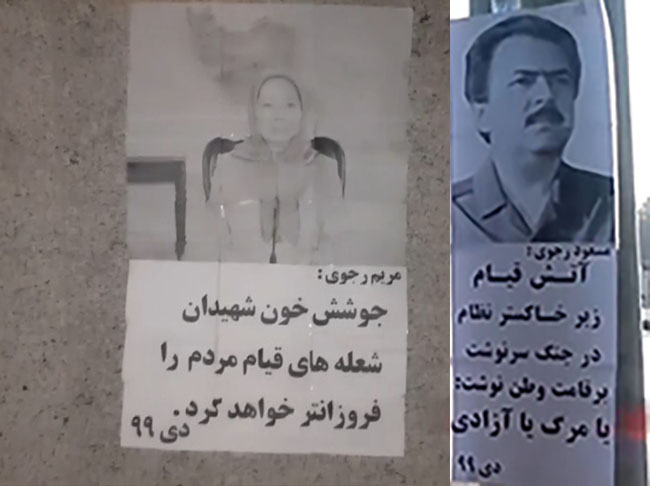 مریم رجوی:
جوشش خون شهیدان
شعله های قیام مردم را
فروزانتر خواهد کرد.
دی ۹۹
مسعود رجوی:
آتش قیام
زیر خاکستر نظام
در جنگ سرنوشت
برقامت وطن نوشت:
یا مرگ یا آزادی
دی ۹۹